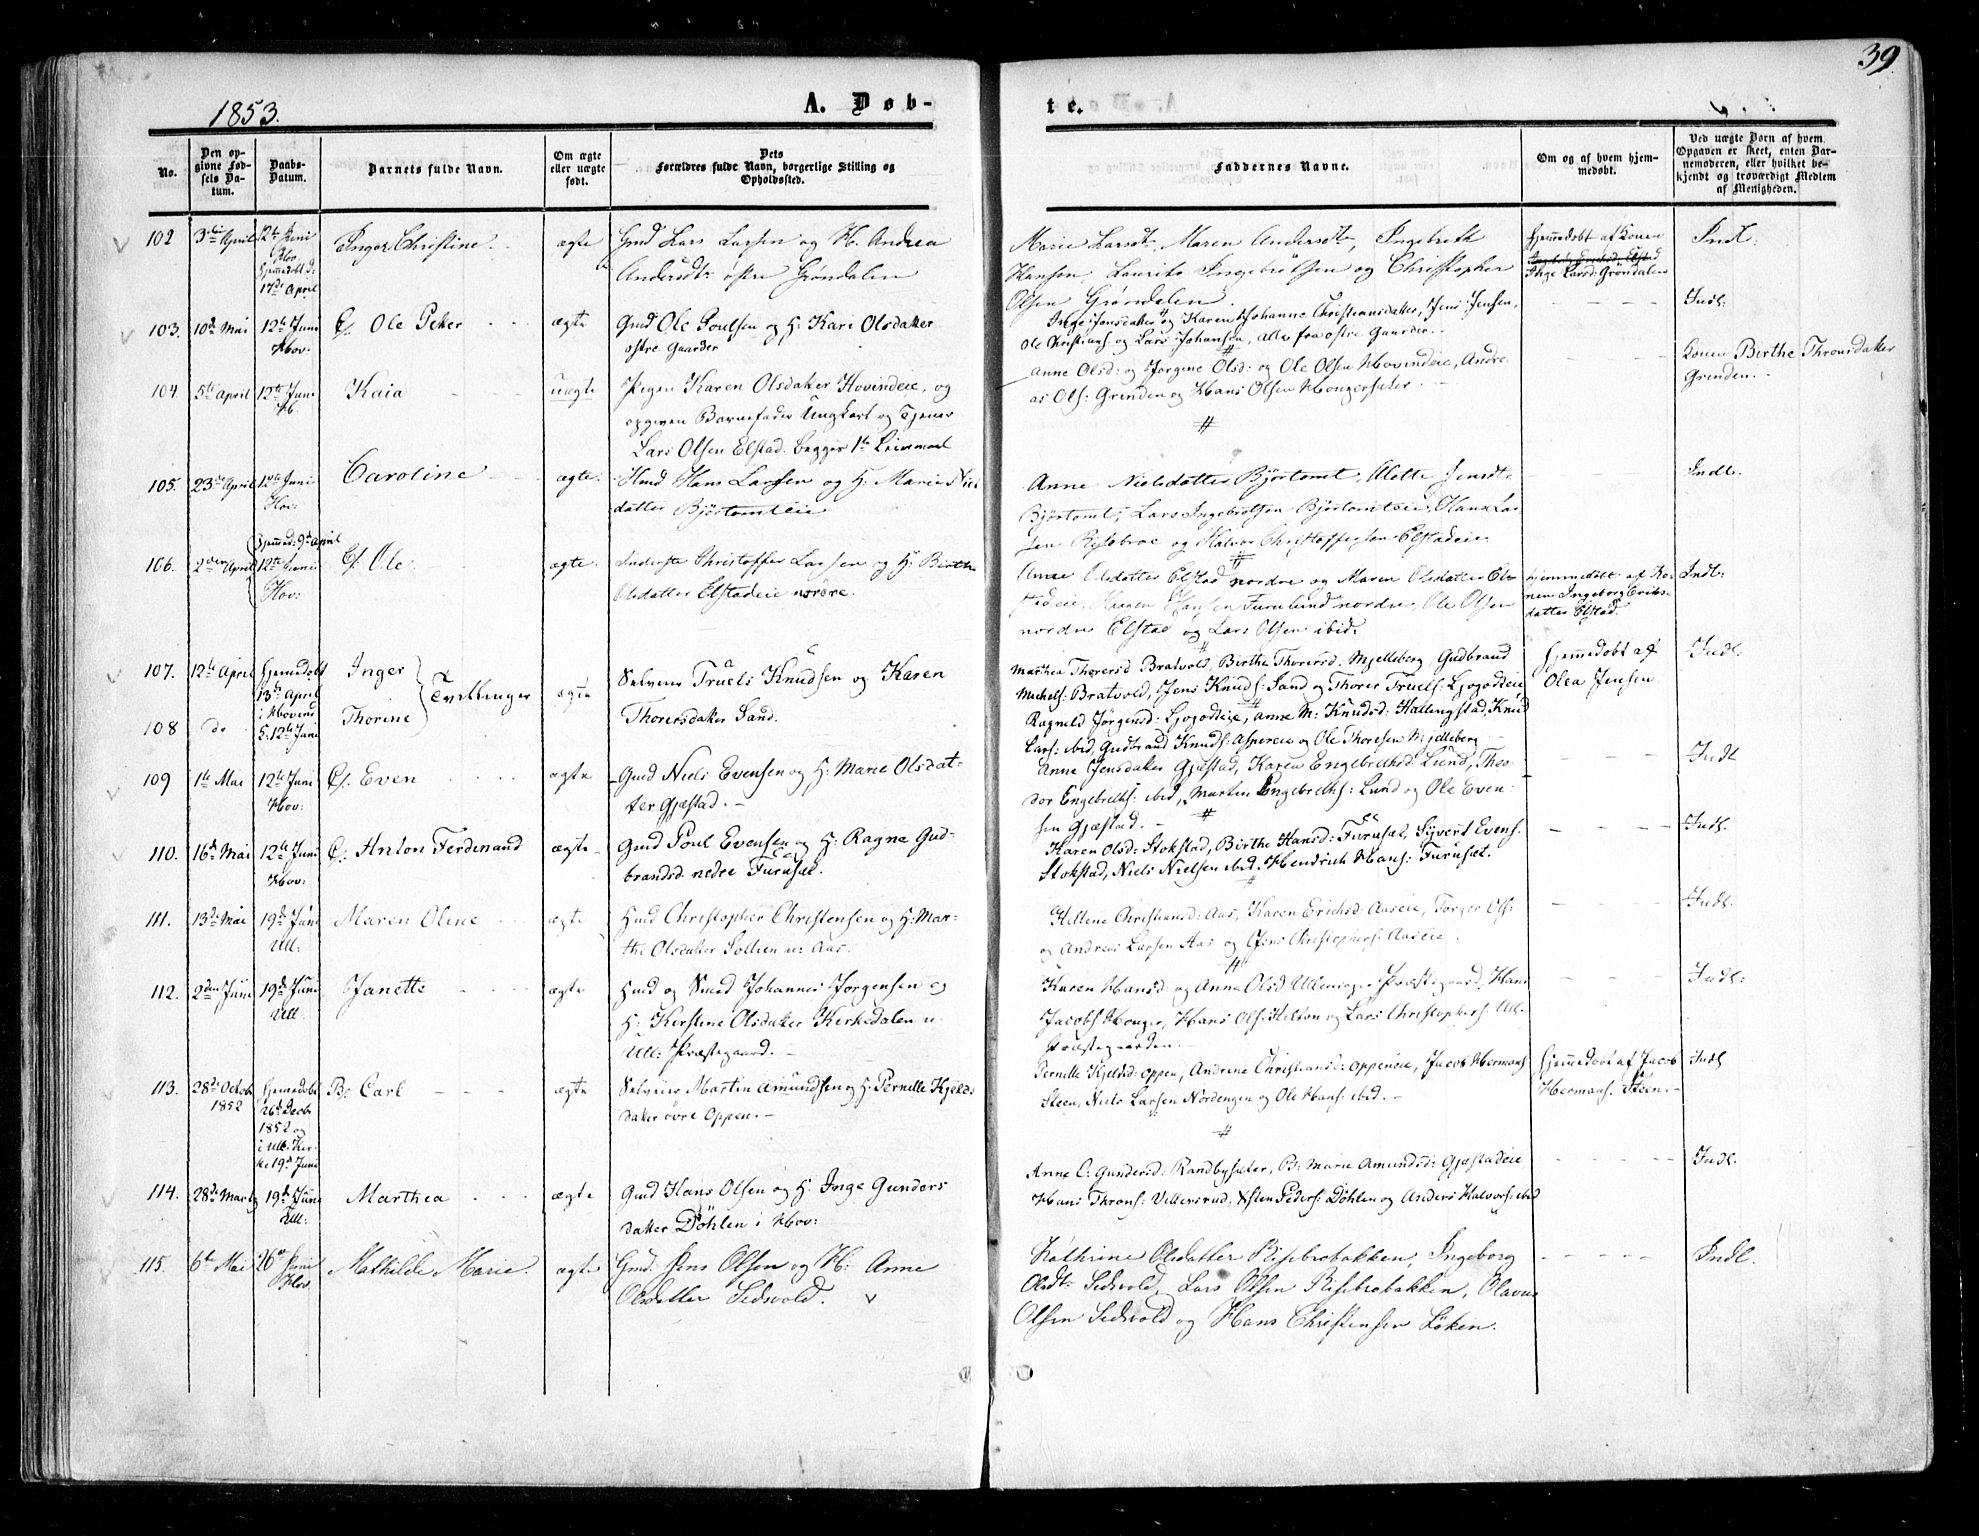 39
1853.
A. Døb-
te.
No.
Den op-
givne Fød-
sels Da-
tum.
Daabs-
Datum.
Barnets fulde Navn.
Om ægte
eller uægte
født.
Dets
Forældres fulde Navn, borgerlige Stilling og
Opholdssted.
Faddernes Navne.
Om og af hvem hjem-
medøbt.
Ved uægte Barn af hvem
Opgaven er skeet, enten Bar-
nemoderen, eller hvilket be-
kjendt og troværdigt Medlem
af Menigheden.
102
3die April
12te Juni
Hov
hjemmedøbt d:
17de April
Inger Christine
ægte
Gmd Lars Larsen og H. Andrea
Andersdt østre Grøndalen
Marie Larsdt, Maren Andersdt, Ingebreth
Hansen, Laurits Ingebretsen og Christopher
Olsen Grøndalen.
hjemmedøbt af Konen
Inge Larsd: Grøndalen
Indl:
103.
10de Mai
12te Juni
Hov:
Ole Peter
ægte
Gmd Ole Poulsen og H: Kari Olsdatter
østre Gaarder
Inge Jensdatter og Karen Johanne Christiansdatter, Jens Jensen,
Ole Christians og Lars Johansen, alle fra østre Gaarder.
Indl:
104
5te April
12te Juni
H
Kaia
uægte
Pigen Karen Olsdatter Hovindeie, og
opgiven Barnefader Ungkarl og Tjener
Lars Olsen Elstad. begges 1te Leiermaal
Anne Olsd: og Jørgine Olsd: og Ole Olsen Hovindeie, Andre-
as Ols: Grinden og Hans Olsen Hongerseter.
Konen Birthe Thronsdatter
Grinden.
105.
23de April
12te Juni
Hov:
Caroline
ægte.
Hmd Hans Larsen og H: Marie Niels
datter Bjørtomteie
Anne Nielsdatter Bjørtomt, Alette Jensdt
Bjørtomt, Lars Ingebretsen Bjørtomteie, Hans Lar-
sen Risebroe og Halvor Christoffersen Elstadeie.
Indl.
106.
2den April
Hjemmed: 9de April
12te Juni
Hov:
Ole
ægte.
Inderste Christoffer Larsen og H: Birthe
Olsdatter Elstadeie nordre.
Anne Olsdatter Elstad nordre og Maren Olsdatter El-
stadeie, Haagen Hansen Furulund nordre, Ole Olsen
nordre Elstad og Lars Olsen ibid.
hjemmedøbt af Ko-
nen Ingeborg Eriks-
datter Elstad.
Indl:
107.
12te April
hjemmedøbt
13de April
i Hovind
d: 12te Juni
Inger
Tvillinger
ægte
Selveier Truels Knudsen og Karen
Thorersdatter Sand.
Marthea Thorersd Bratvold, Birthe Thorersd. Mjelleberg, Gudbrand
Michels: Bratvold, Jens Knuds: Sand og Thorer Truels: Ljogodteie
Hjemmedøbt af
Olea Jensen.
Indl.
108
do
Thorine
Ragnild Jørgensd: Ljogodteie, Anne M: Knudsd: Hallingstad, Knud
Lars: ibid, Gudbrand Knuds: Aspereie og Ole Thoresen Mjelleberg
109
1te Mai
12te Juni
Hov:
Even
ægte
Gmd Niels Evensen og H: Marie Olsdat-
ter Gjæstad.
Anne Jensdatter Gjæstad, Karen Engebrethsd: Lund, Theo-
dor Engebreths: ibid, Martin Engebreths: Lund og Ole Even-
sen Gjæstad.
Indl
110.
16de Mai
12te Juni
Hov:
Anton Ferdinand
ægte
Gmd Poul Evensen og H: Ragne Gud-
brandsd nedre Furuset.
Karen Olsd: Stokstad, Birthe Hansd: Furuset, Syvert Evens:
Stokstad, Niels Nielsen ibid. Hendrich Hans: Furuset.
Indl.
111.
13de Mai
19de Juni
Ull:
Maren Oline
ægte
Hmd Christopher Christensen og H: Mar-
the Olsdatter Sollien u: Aas.
Hellene Christiansd: Aas, Karen Erichsd: Aaseie, Torger Ols:
og Andreas Larsen Aas og Jens Christophers: Aaseie.
Indl.
112.
2den Juni
19de Juni
Ull.
Janette
ægte
Hmd og Smed Johannes Jørgensen og
H: Kirstine Olsdatter Kirkedalen u.
Ull: Præstegaard.
Karen Hansd: og Anne Olsd Præstegaard, Hans
Jacobs Honger, Hans Ols: Helton og Lars Christophers: Ull:
Præstegaarden.
Indl:
113.
28de Octob
1852
hjemmedøbt
26de Decb
1852 og
i Ull. Kir-
ke 19de Juni
Carl
ægte
Selveier Martin Amundsen og H: Pernille Kjelds
datter øvre Oppen.
Pernille Kjeldsd: Oppen, Andrine Christiansd: Oppeneie, Jacob Hermans
Steen, Niels Larsen Nordengen og Ole Hans: ibid.
Hjemmedøbt af Jacob
Hermans. Steen.
Indl
114.
28de Marts
19de Juni
Ull:
Marthea
ægte
Gmd Hans Olsen og H Inge Gunders
datter Døhlen i Hov:
Anne C: Gundersd: Randbyseter, B: Marie Amundsd: Gjæstadeie
Hans Throns: Villersrud, Peders Døhlen og Anders Halvors: ibid
Indl.
115.
6te Mai
26de Juni
Hov.
Mathilde Marie
ægte
Gmd. Jens Olsen og H: Anne
Olsdatter Sedsvold.
Kathrine Olsdatter Risebrobakken, Ingeborg
Olsdt Sedsvold, Lars Olsen Risebrobakken, Olavus
Olsen Sedsvold og Hans Christensen Løken.
Indl.